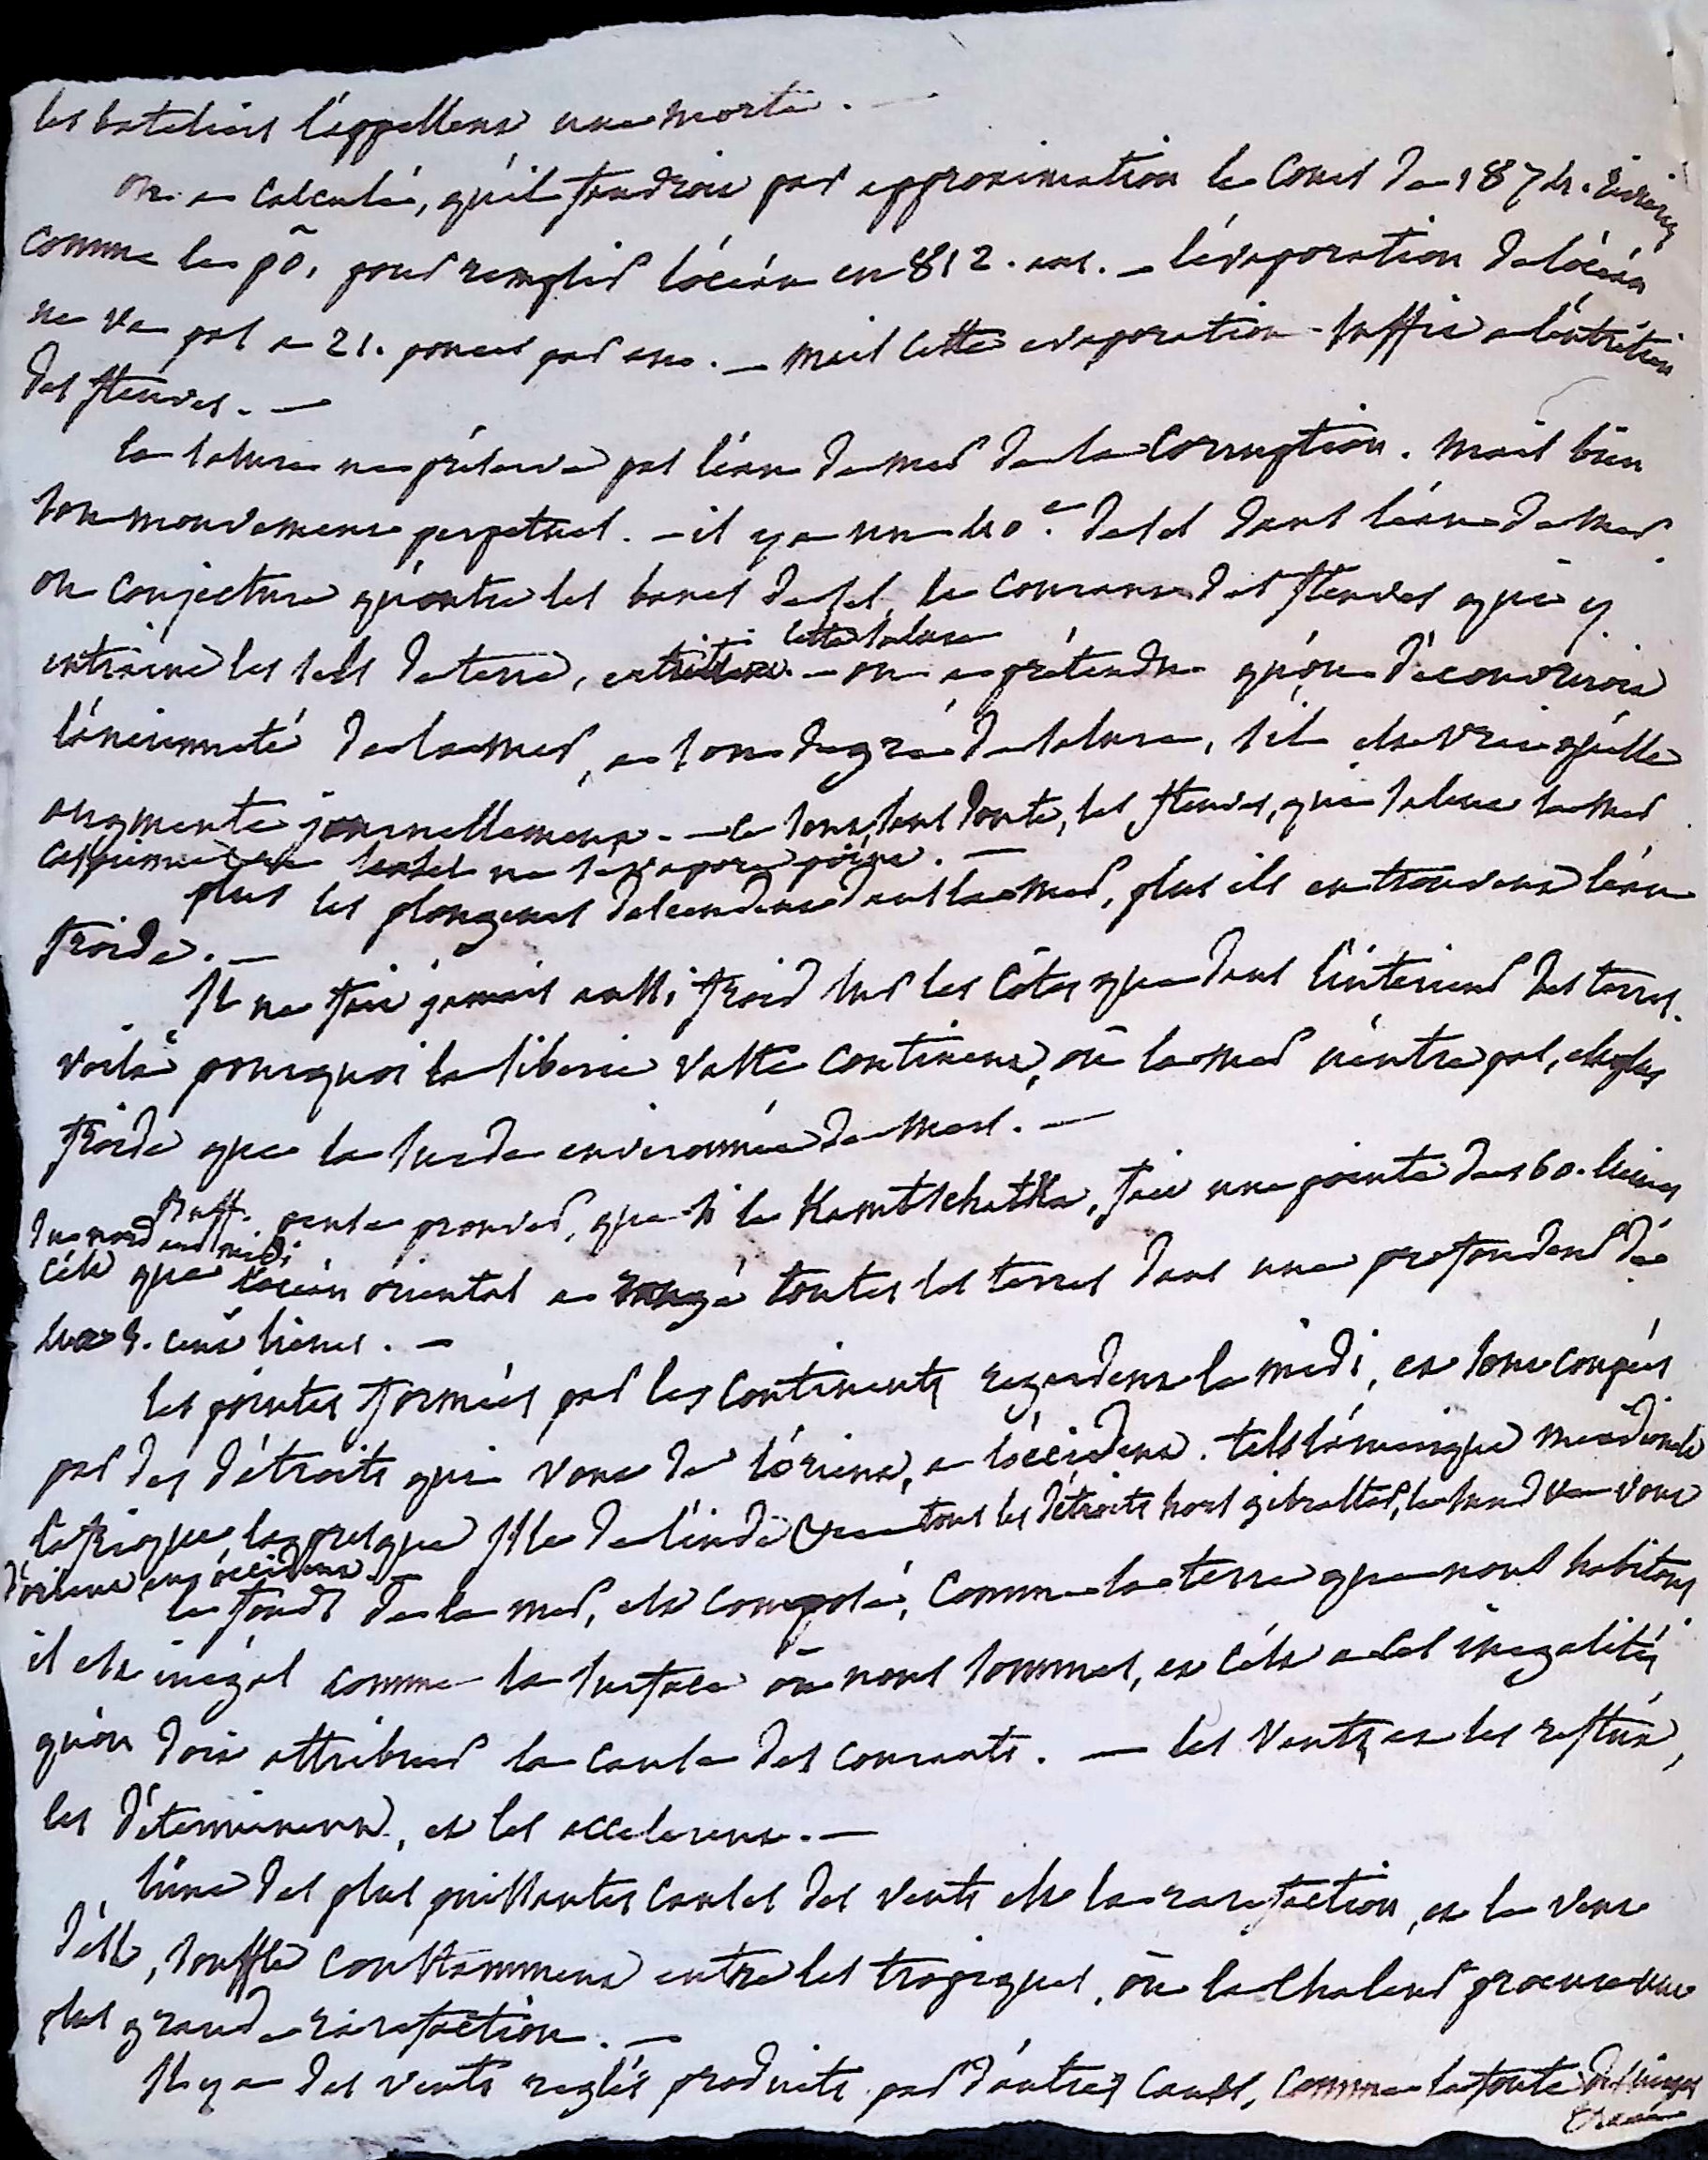 les bateliers l'appellent une morte. —
on a calculé, qu'il faudroit par approximation le cours de 1874. rivieres
comme le pô, pour remplir l'océan en 812. ans. — l'évaporation de l'océan
ne va pas a 21. pouces par an. — mais cette evaporation suffit a l'entretien
des fleuves. —
la salure ne préserve pas l'éau de mer de la corruption. mais bien
son mouvement perpetuel. — il y a un 40.e de sel dans l'éau de mer
on conjecture qu'outre les bancs de sel, le courant des fleuves qui y
cette salure
entraine les sels de terre, entretient — on a prétendu qu'on découvriroit
l'ancienneté de la mer, a son degré de salure, s'il est vrai qu'elle
augmente journellement. — ce sont, sans doute, les fleuves, qui salent la mer
caspienne le sel ne s'évapore point. —
plus les plongeurs descendent dans la mer, plus ils en trouvent l'éau
froide. —
Il ne fait jamais aussi froid sur les côtes que dans l'interieur des terres.
voila pourquoi la siberie vaste continent, où la mer n'entre pas, est plus
froide que la suede environnée de mers. —
Buff. pense prouver, que si le Kamtschatka, fait une pointe de 160. lieues
du nord au midi
c'est que l'océan oriental a rongé toutes les terres dans une profondeur de
4. cens lieues. —
les pointes formées par les continents regardent le midi, et sont coupées
par des détroits qui vont de l'orient, a l'occident. tels l'amerique meridionale
l'afrique, la presque isle de l'inde tous les détroits hors gibraltar, le sund vont
d'orient en occident. —
le fond de la mer, est composé, comme la terre que nous habitons
il est inégal comme la surface où nous sommes, et c'est a ces inegalités,
qu'on doit attribuer la cause des courants. — les vents et les reflux,
les déterminent, et les accelerent. —
l'une des plus puissantes causes des vents est la rarefaction, et le vent
d'est, souffle constamment entre les tropiques, où la chaleur procure une
plus grande rarefaction. —
Il y a des vents reglés produits par d'autres causes, comme la fonte des neiges